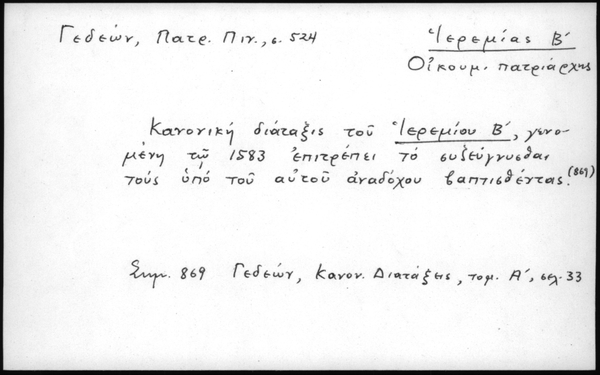 Γεδεών, Πατρ. Πιν., σ. 524
Ἱερεμίας Β΄
Οἰκουμ. πατριάρχης
Κανονική διάταξις τοῦ Ἱερεμίου Β΄, γενο-
μένη τῷ 1583 ἐπιτρέπει τό συζεύγνυσθαι
τούς ὑπό τοῦ αὐτοῦ ἀναδόχου βαπτισθέντας.(869)
Σημ. 869 Γεδεών, Κανον. Διατάξεις, τομ. Α΄, σελ. 33